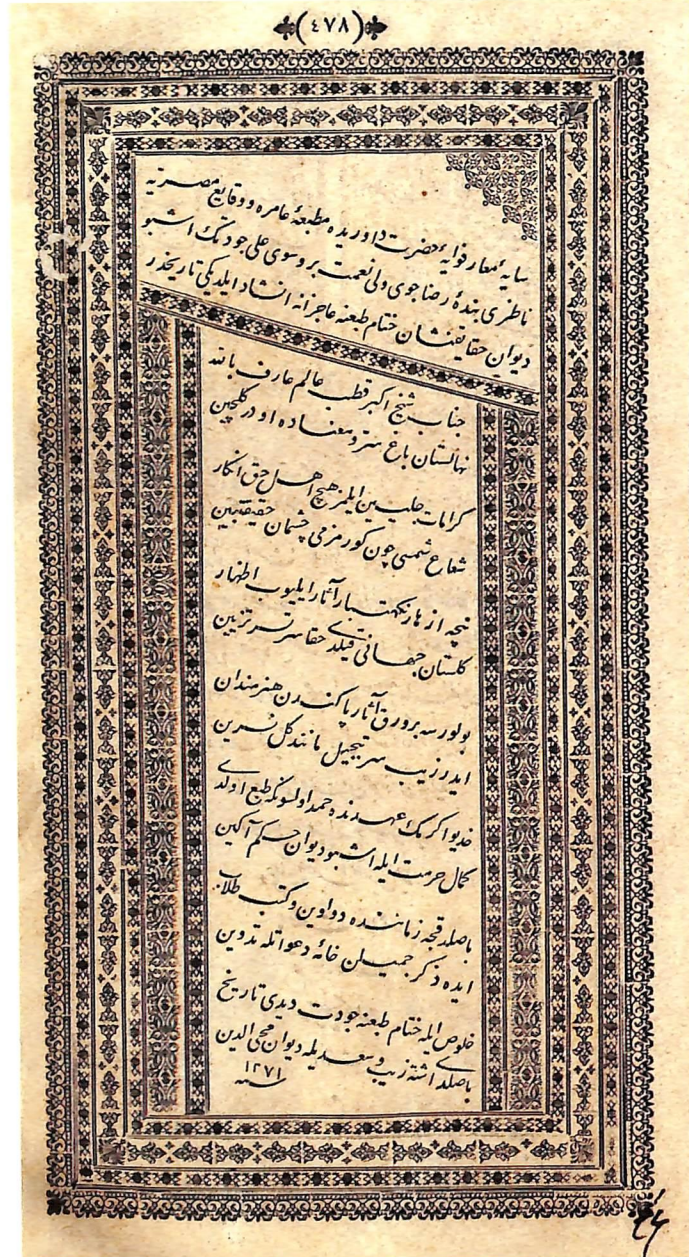 (٤٧٨)
سایهٔ معارفوایهٔ حضرت داوریده مطبعهٔ عامره و وقایع مصریه
ناظری بندهٔ رضاجوی ولی نعمت بروسوی علی جودتك اشبو
دیوان حقایقنشان ختام طبعنه عاجزانه انشاد ایلدیکی تاریخدر
جناب شیخ اکبر قطب عالم عارف بالله
نهالستان باغ سرّ و معناده اودر کلچین
کرامات جلیه‌سین ایلمز هیچ اهل حق انکار
شعاع شمسی چون کورمزمی چشمان حقیقتبین
نیچه ازهار نکهتسار آثار ایلیوب اظهار
کلستان جهانی قیلدی حقا سر تسر تزیین
بولورسه بر ورق آثار پاکندن هنرمندان
ایدر زیب سر تبجیل مانند کل نسرین
خدیو اکرمك عهدنده حمد اولسونکه طبع اولدی
کمال حرمت ایله اشبو دیوان حکم آکین
باصلدقجه زماننده دواوین و کتب طلاب
ایده ذکر جمیلن خانهٔ دعواتله تدوین
خلوص ایله ختام طبعنه جودت دیدی تاریخ
باصلدی اشته زیب و سعدیله دیوان محی الدین
سنه ١٢٧١